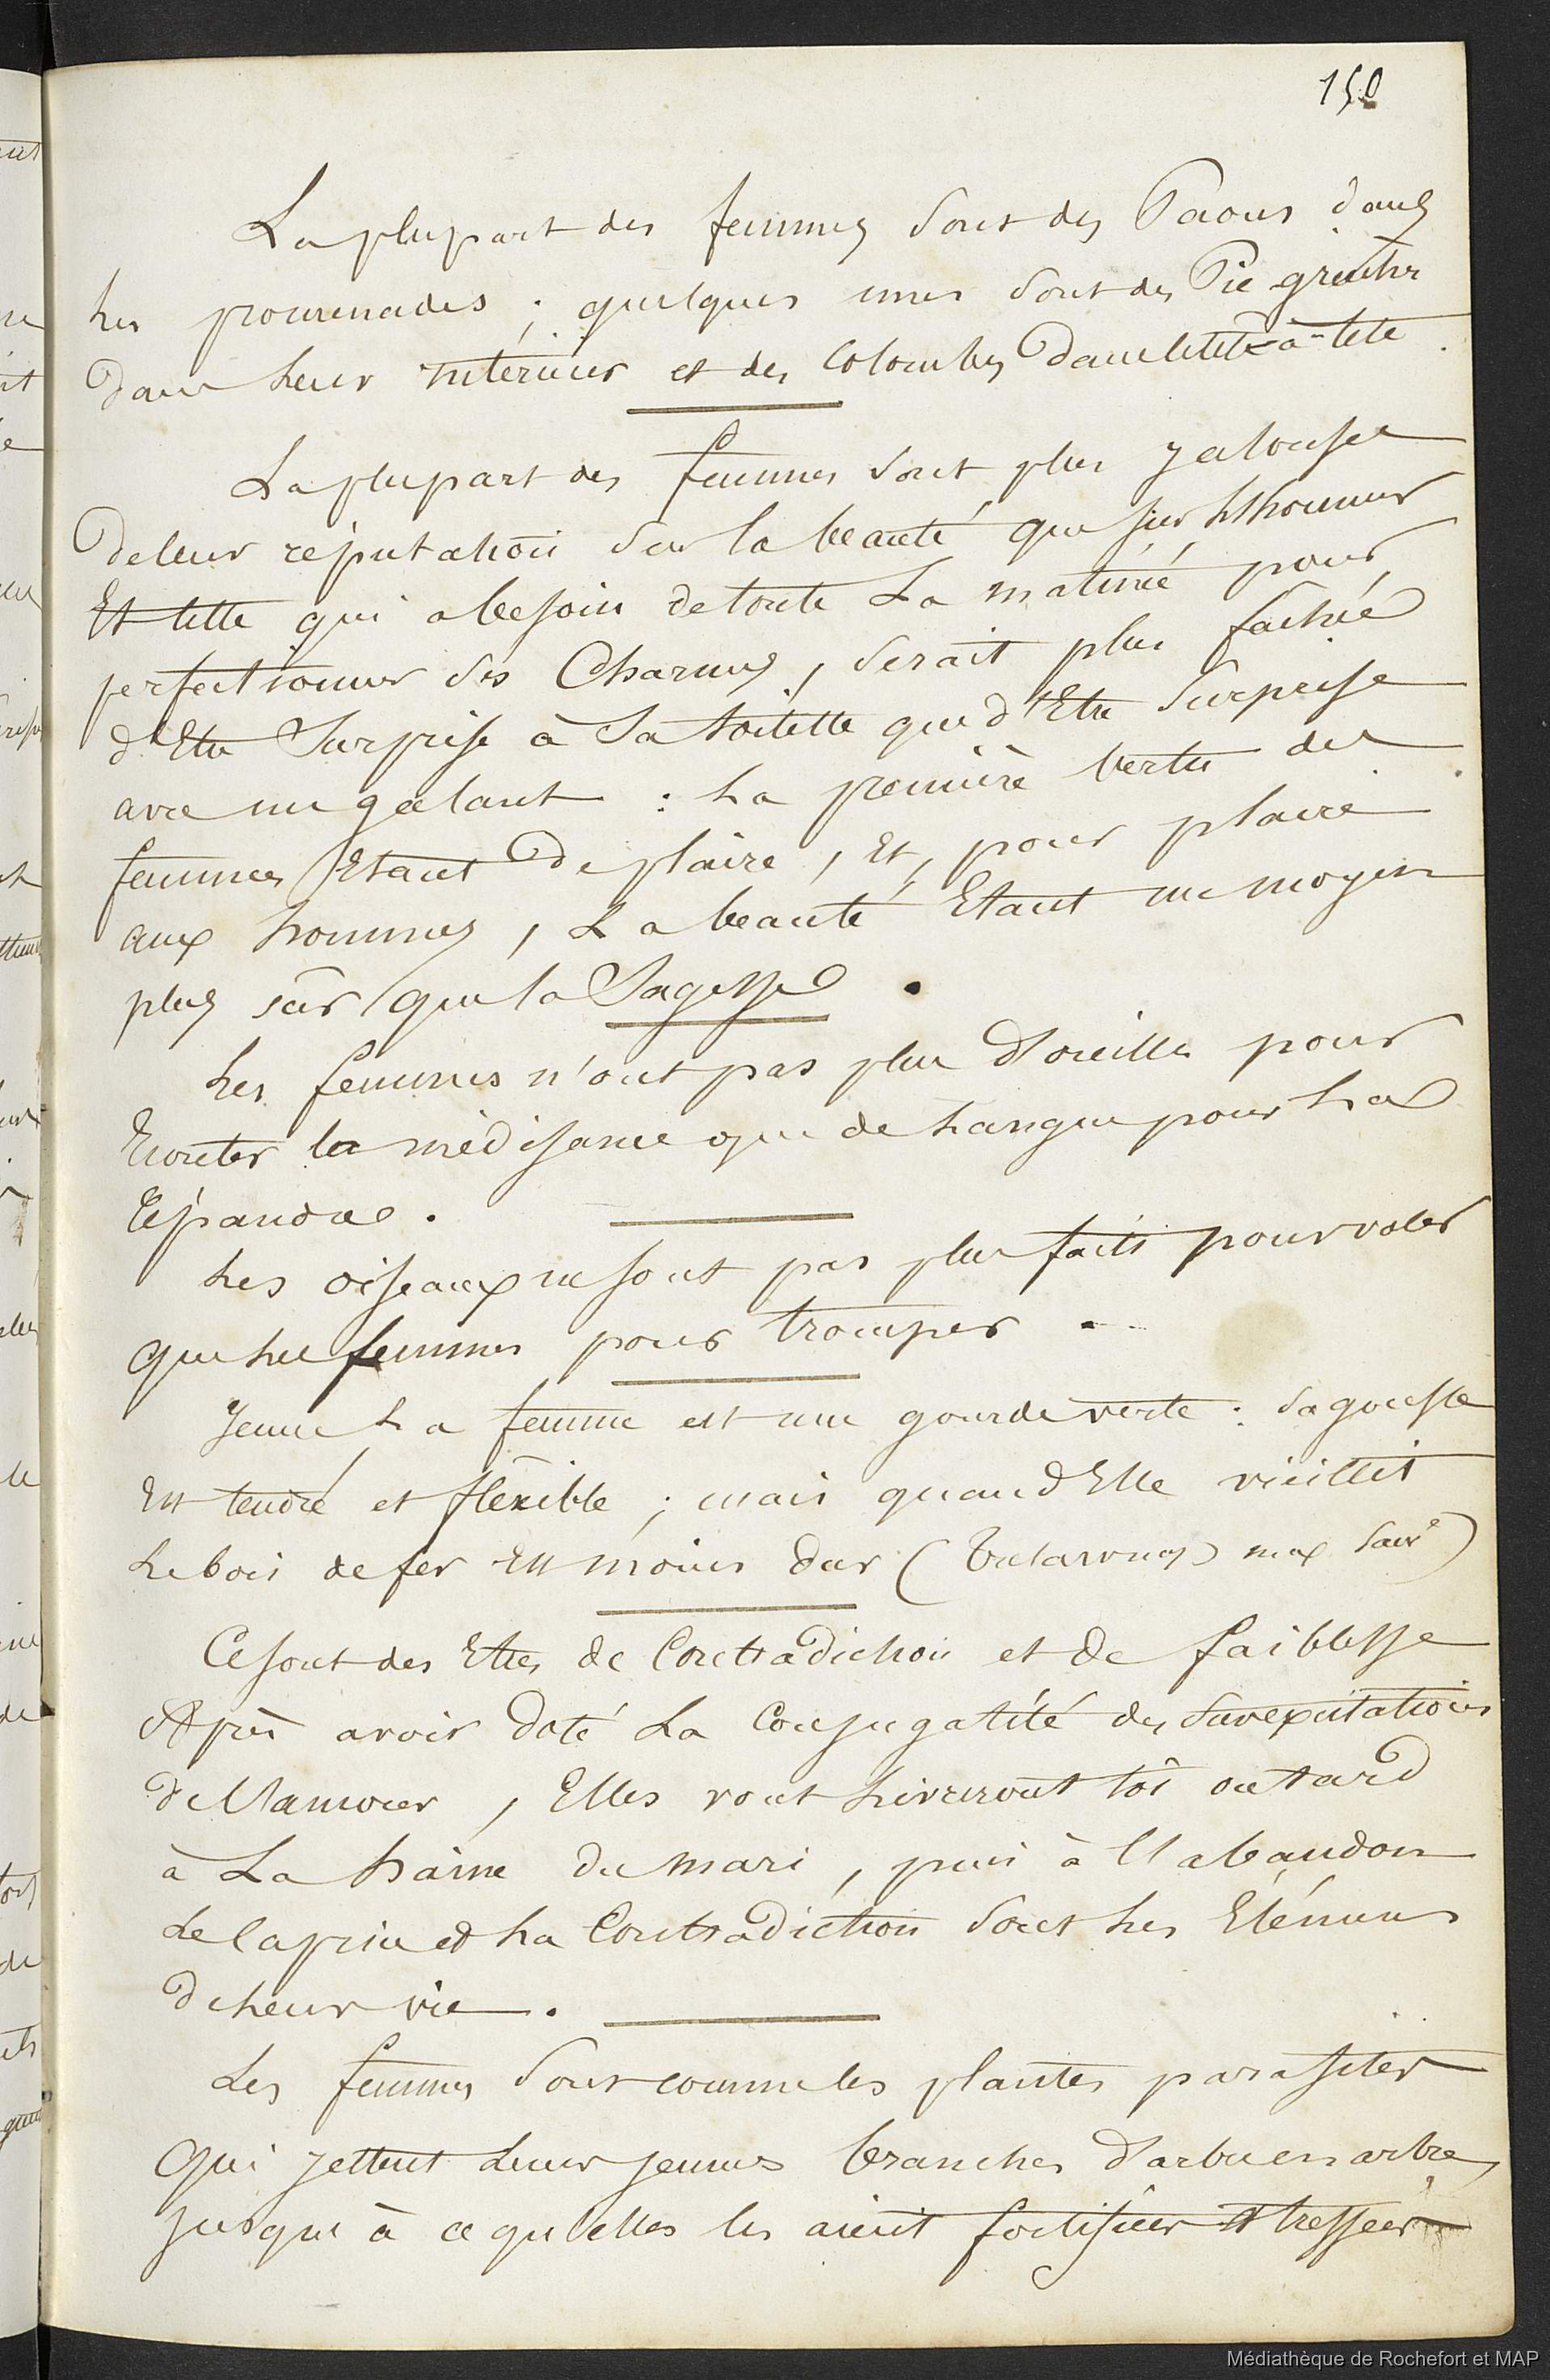 150
La plupart des femmes sont des Paons dans
les promenades ; quelques unes sont des Pie grièche
dans leur intérieur et des Colombes dans le tête-à-tête.
La plupart des femmes sont plus jalouse
de leur réputation sur la beauté que sur l'honneur
Et telle qui a besoin de toute la matinée pour
perfectionner ses Charmes, serait plus fachée
d'Etre Surprise à Sa toilette que d'Etre Surprise
avec un galant : la première vertu des
femmes Etant De plaire, Et, pour plaire
aux hommes, La beauté Etant un moyen
plus sûr que la Sagesse.
les femmes n'ont pas plus d'oreilles pour
Ecouter la médisance que de langue pour la
Répandre.
les oiseaux ne sont pas plus faits pour voler
que les femmes pour tromper.
Jeune la femme est une gourde verte : sa gousse
Est tendre et flexible ; mais quand Elle vieillit
le bois de fer Est moins dur ( max
Ce sont des Etres de Contradiction et de faiblesse
Après avoir doté la Conjugalité des surexcitations
de l'amour, Elles vont livreront tôt ou tard
à La haine du mari, puis à l'abandon
la Contradiction sont les Elémens
de leur vie.
Les femmes sont comme les plantes parasites
qui jettent leurs jeunes branches d'arbre en arbre,
jusque à ce qu'elles les aient fortifiées et tressées
Médiathèque de Rochefort et MAP